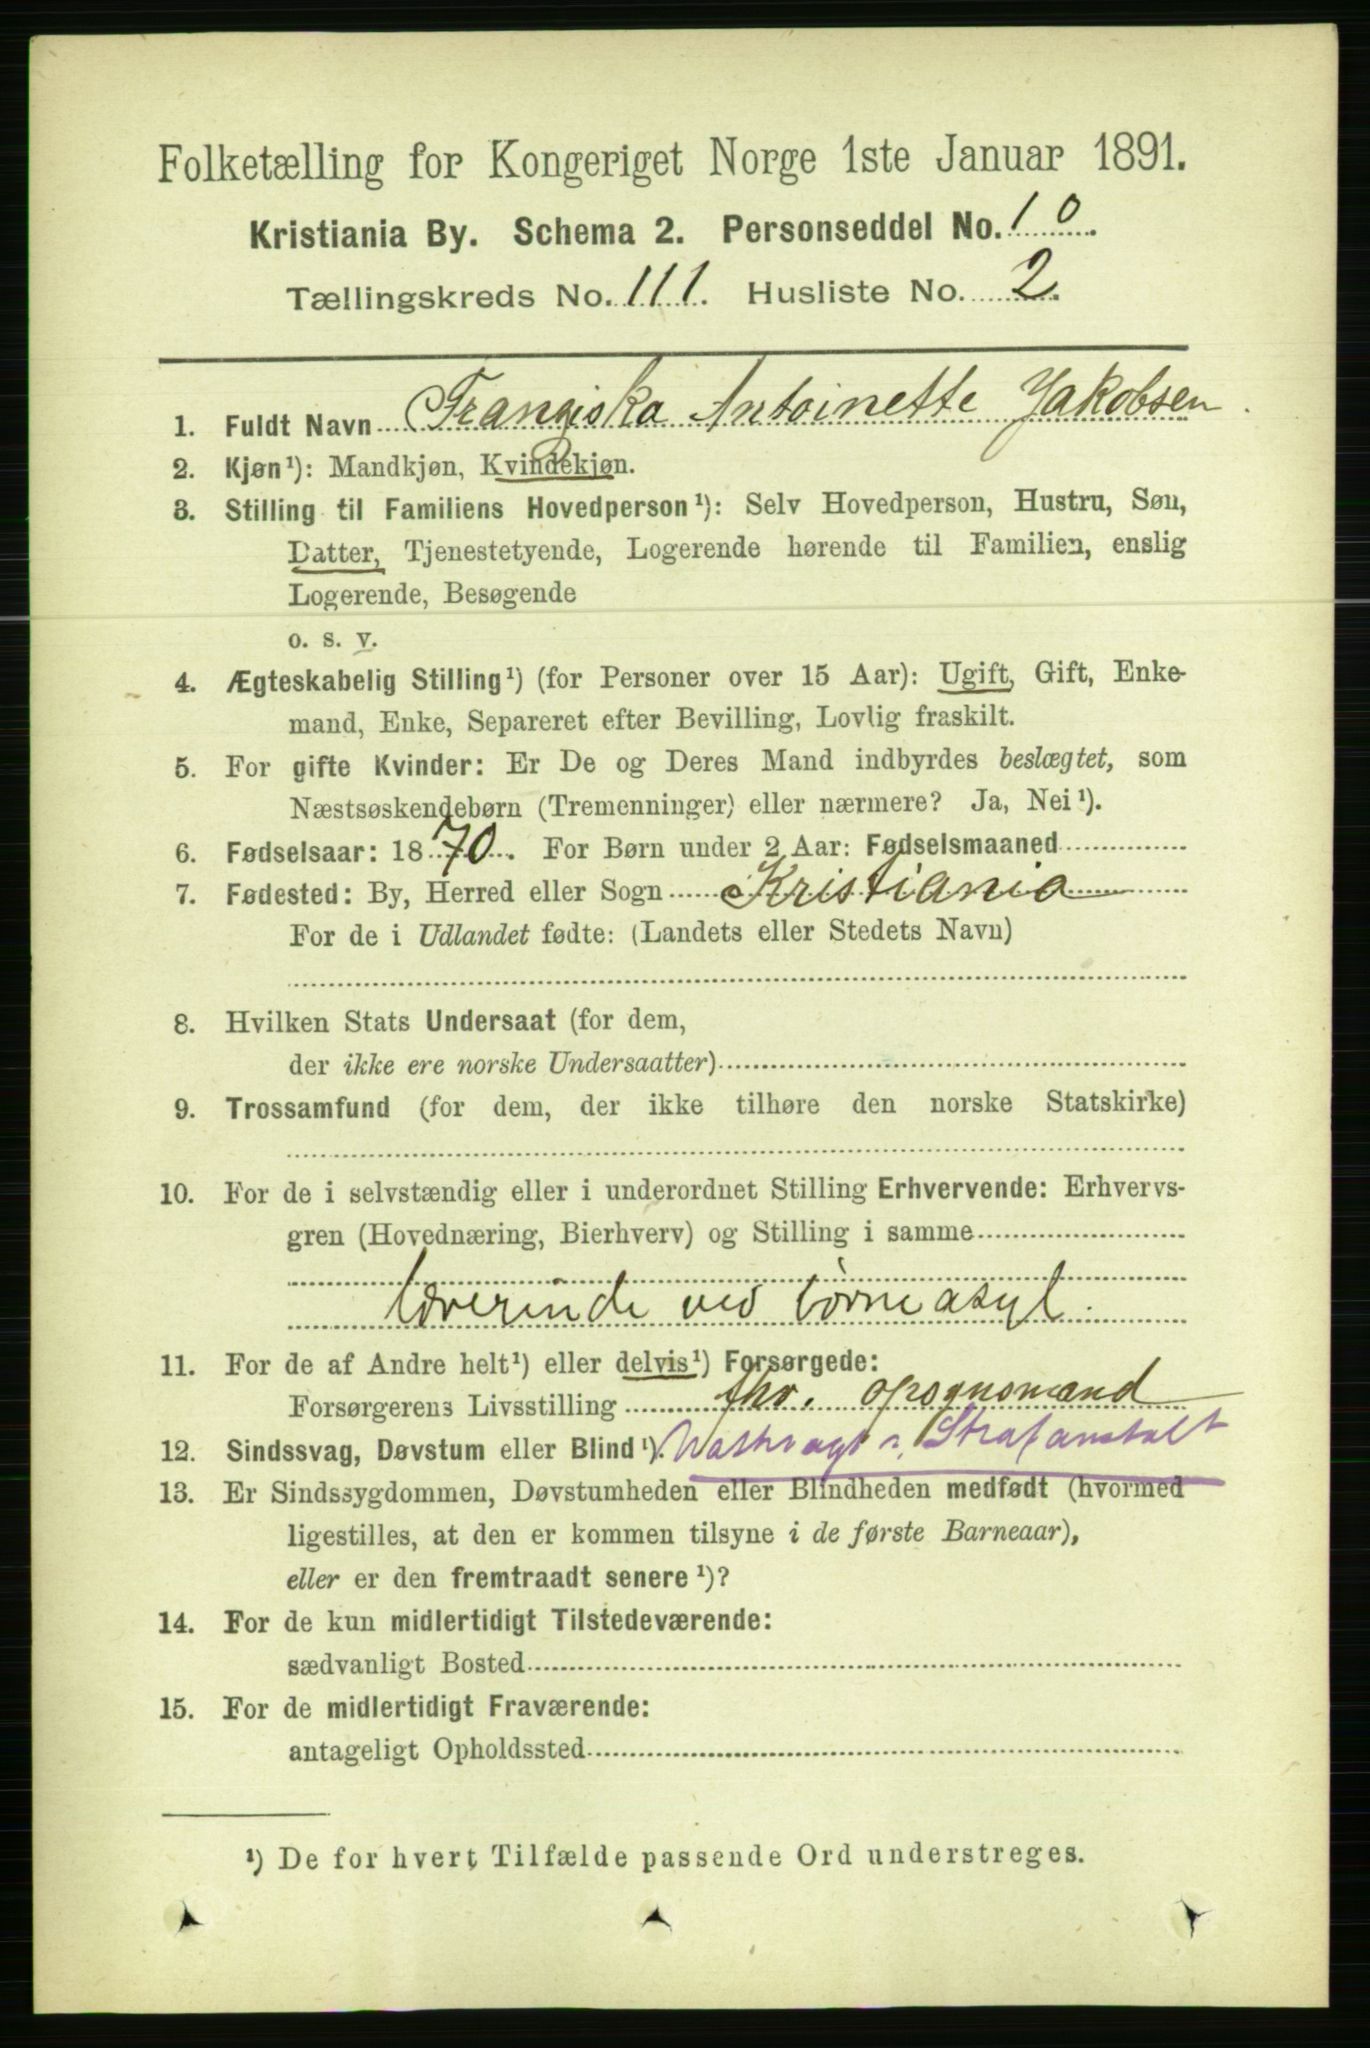 Folketælling for Kongeriget Norge 1ste Januar 1891.
Kristiania By. Schema 2. Personseddel No. 10.
Tællingskreds No. 111. Husliste No. 2.
1. Fuldt Navn Franziska Antoinette Jakobsen.
2. Kjøn¹): Mandkjøn, Kvindekjøn.
3. Stilling til Familiens Hovedperson¹): Selv Hovedperson, Hustru, Søn,
Datter, Tjenestetyende, Logerende hørende til Familien, enslig
Logerende, Besøgende
o. s. v.
4. Ægteskabelig Stilling¹) (for Personer over 15 Aar): Ugift, Gift, Enke-
mand, Enke, Separeret efter Bevilling, Lovlig fraskilt.
5. For gifte Kvinder: Er De og Deres Mand indbyrdes beslægtet, som
Næstsøskendebørn (Tremenninger) eller nærmere? Ja, Nei¹).
6. Fødselsaar: 1870. For Børn under 2 Aar: Fødselsmaaned
7. Fødested: By, Herred eller Sogn Kristiania
For de i Udlandet fødte: (Landets eller Stedets Navn)
8. Hvilken Stats Undersaat (for dem,
der ikke ere norske Undersaatter)
9. Trossamfund (for dem, der ikke tilhøre den norske Statskirke)
10. For de i selvstændig eller i underordnet Stilling Erhvervende: Erhvervs-
gren (Hovednæring, Bierhverv) og Stilling i samme
Lærerinde ved børneasyl.
11. For de af Andre helt¹) eller delvis¹) Forsørgede:
Forsørgerens Livsstilling opsynsmand
12. Sindssvag, Døvstum eller Blind¹). Strafanstalt
13. Er Sindssygdommen, Døvstumheden eller Blindheden medfødt (hvormed
ligestilles, at den er kommen tilsyne i de første Barneaar),
eller er den fremtraadt senere¹)?
14. For de kun midlertidigt Tilstedeværende:
sædvanligt Bosted
15. For de midlertidigt Fraværende:
antageligt Opholdssted
¹) De for hvert Tilfælde passende Ord understreges.